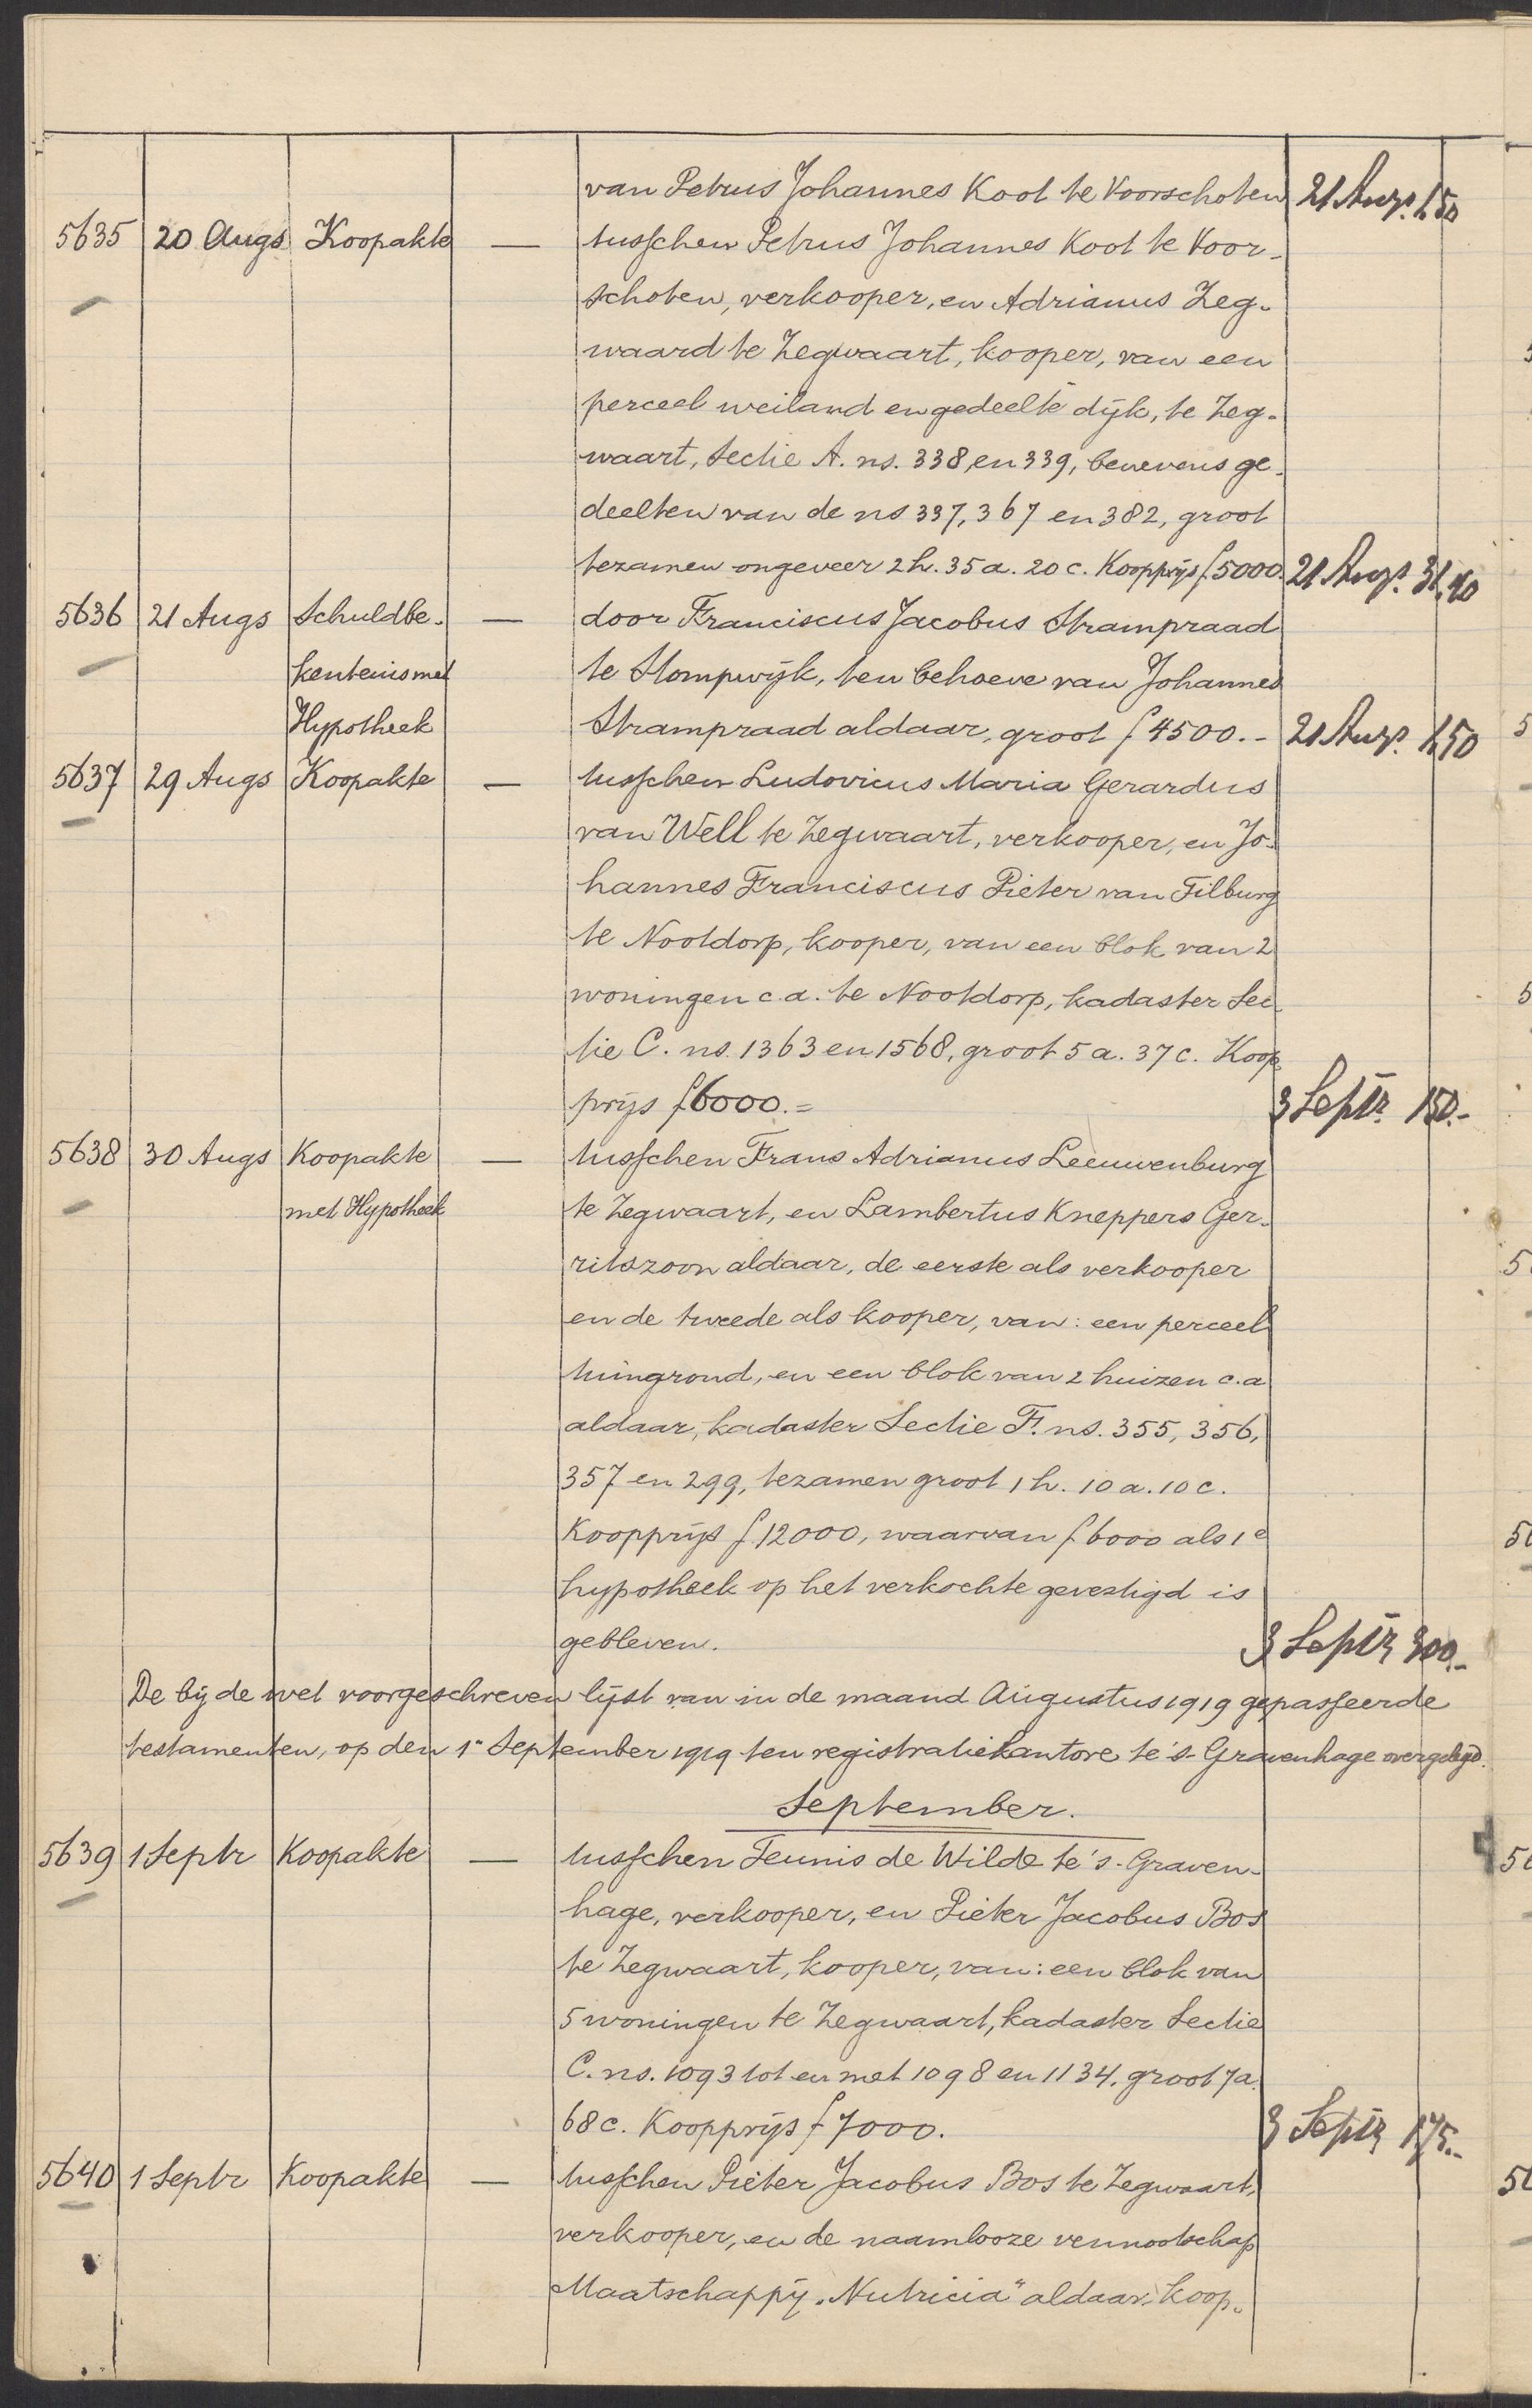 van Petrus Johannes Koot te Voorschoten 21 Augs. 1,50
5635 20 Augs Koopakte — tusschen Petrus Johannes Koot te Voor-
schoten, verkooper, en Adrianus Zeg-
waard te Zegwaart, kooper, van een
perceel weiland en gedeelte dijk, te Zeg-
waart, Sectie A. ns. 338, en 339, benevens ge-
deelten van de ns 337, 367 en 382, groot
tezamen ongeveer 2 h. 35 a. 20 c. Koopprijs f 5000. 21 Augs.
5636 21 Augs Schuldbe- — door Franciscus Jacobus Strampraad
kentenis met te Stompwijk, ten behoeve van Johannes
Hypotheek Strampraad aldaar, groot f 4500.- 21 Augs. 1,50
5637 29 Augs Koopakte — tusschen Ludovicus Maria Gerardus
van Well te Zegwaart, verkooper, en Jo-
hannes Franciscus Pieter van Tilburg
te Nootdorp, kooper, van een blok van 2
woningen c.a. te Nootdorp, kadaster Sec-
tie C. ns. 1363 en 1568, groot 5 a. 37 c. Koop-
prijs f 6000.= 3 Septr. 150.-
5638 30 Augs Koopakte — tusschen Frans Adrianus Leeuwenburg
met Hypotheek te Zegwaart, en Lambertus Kneppers Ger-
ritszoon aldaar, de eerste als verkooper
en de tweede als kooper, van: een perceel
tuingrond, en een blok van 2 huizen c.a
aldaar, kadaster Sectie F. ns. 355, 356,
357 en 299, tezamen groot 1 h. 10 a. 10 c.
Koopprijs f 12000, waarvan f 6000 als 1e
hypotheek op het verkochte gevestigd is
gebleven. 3 Septr 300.-
De bij de wet voorgeschreven lijst van in de maand Augustus 1919 gepasseerde
testamenten, op den 1n September 1919 ten registratiekantore te 's-Gravenhage overgelegd.
September.
5639 1 Septr Koopakte — tusschen Teunis de Wilde te 's-Graven-
hage, verkooper, en Pieter Jacobus Bos
te Zegwaart, kooper, van: een blok van
5 woningen te Zegwaart, kadaster Sectie
C. ns. 1093 tot en met 1098 en 1134, groot 7 a.
68 c. Koopprijs f 7000. 3 Septr 175.-
5640 1 Septr Koopakte — tusschen Pieter Jacobus Bos te Zegwaart,
verkooper, en de naamlooze vennootschap
Maatschappij „Nutricia" aldaar, koop-